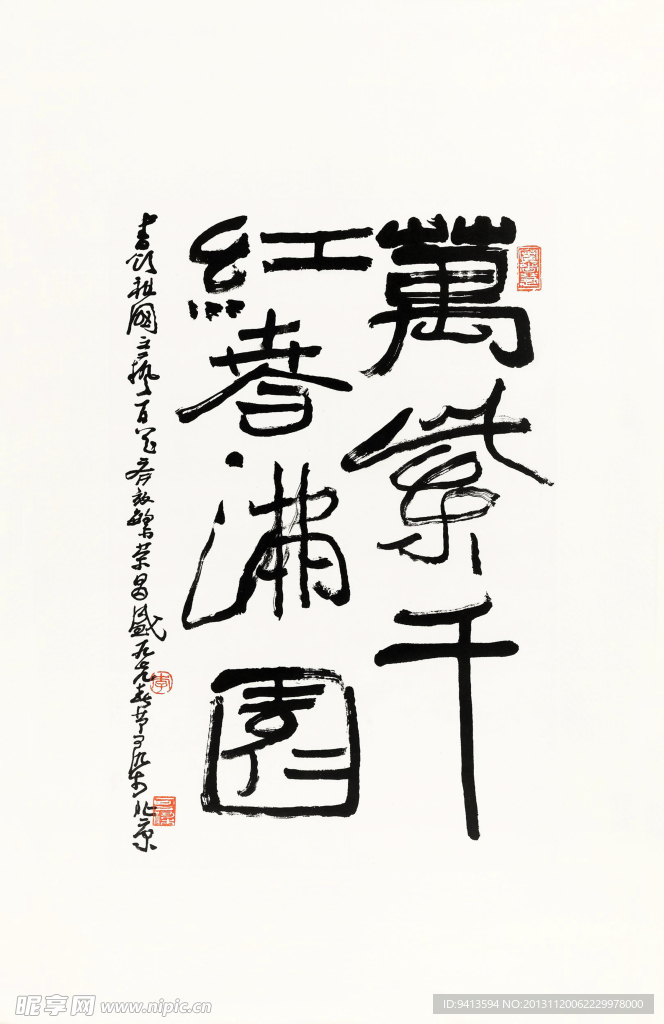 萬紫千
紅春滿園
書頌祖國文藝百花齊放繁榮昌盛
北京
昵享网 www.nipic.cn
ID:9413594 NO:20131120062229978000